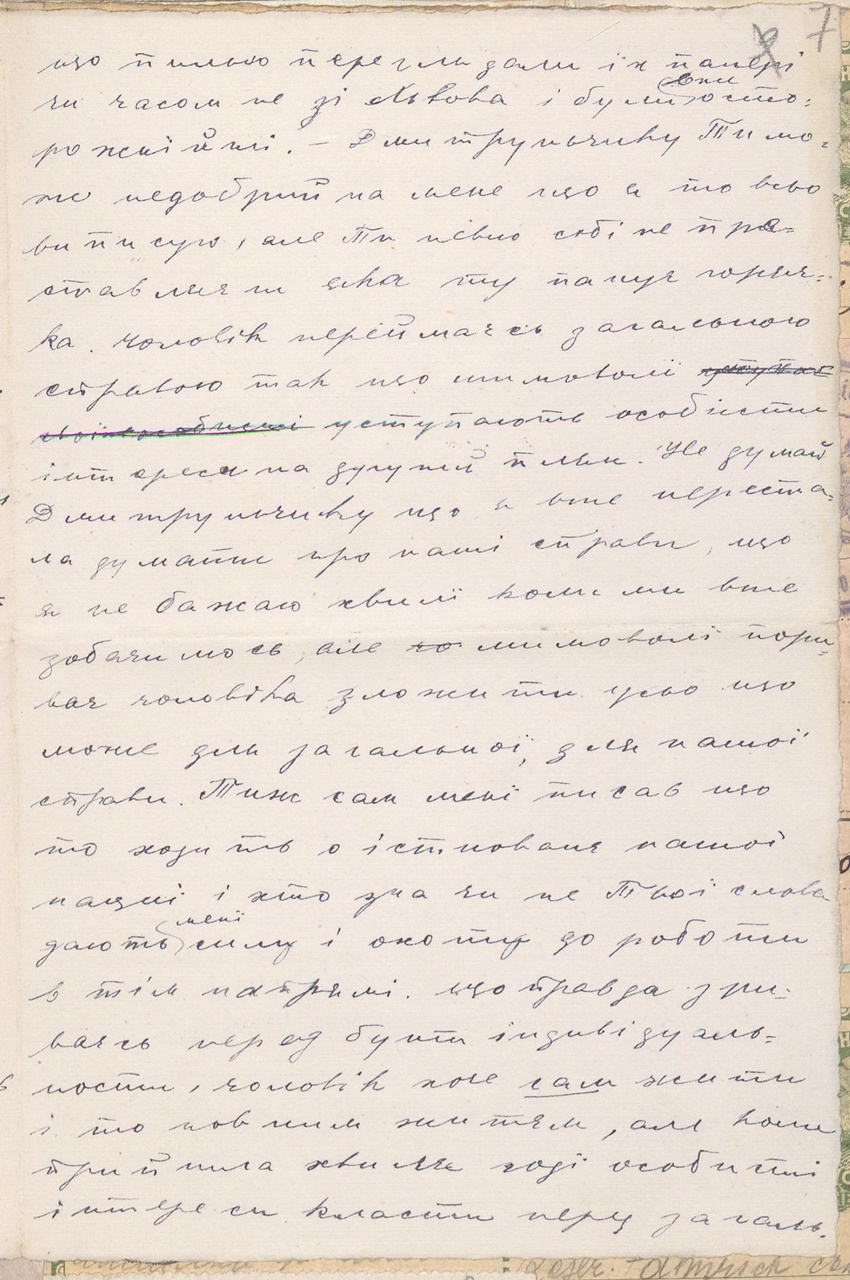 7
що пильно переглядали їх папері
чи часом не зі Львова і були вни осто=
рожнійші. – Дмитруньчику Ти мо=
же недобрий на мене що я то всьо
виписую, але Ти певно собі не пред=
ставляєш яка ту панує горяч=
ка. Чоловік переймаєсь загальною
справою так що мимоволі
уступають особісти
інтереси на другий плян. Не думай
Дмитруньчику що я вже переста=
ла думати про наші справи, що
я не бажаю хвилі коли ми вже
зобачимось, але мимоволі пори=
ває чоловіка зложити усьо що
може для загальної, для нашої
справи. Тиж сам мені писав що
то ходить о істнованє нашої
нациї і хто зна чи не Твої слова
дають мені силу і охоту до роботи
в тім напрямі. Що правда зри=
ваєсь перед бунт індивідуаль=
ности, чоловік хоче сам жити
і то повним житєм, але коли
прийшла хвиля годі особисті
інтереси класти перед загаль.